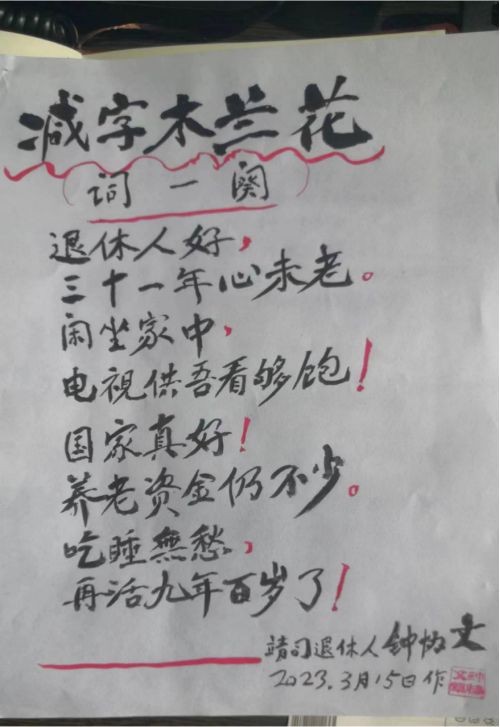 减字木兰花
(词一阕)
退休人好,
三十一年心未老。
闲坐家中,
电視供吾看够饱!
国家真好!
养老资金仍不少。
吃睡無愁,
再活九年百岁了!
靖司退休人钟怡文
2023.3月15日作